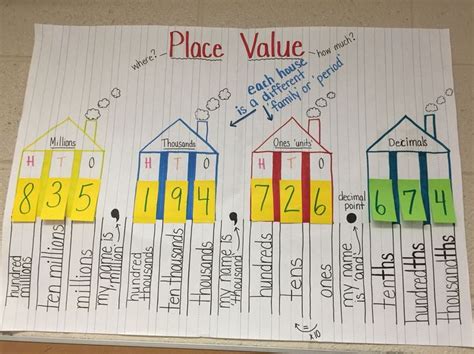 Place Value
where?
how much?
each house
is a different
'family or 'period'
Millions
H T O
8 3 5
Thousands
H T O
1 9 4
Ones 'units'
H T O
7 2 6
decimal
point
Decimals
6 7 4
hundred
millions
ten millions
millions
my name is
'million'
hundred
thousands
ten thousands
thousands
my name is
'thousand'
hundreds
tens
ones
my name
is 'and'
tenths
hundredths
thousandths
x10